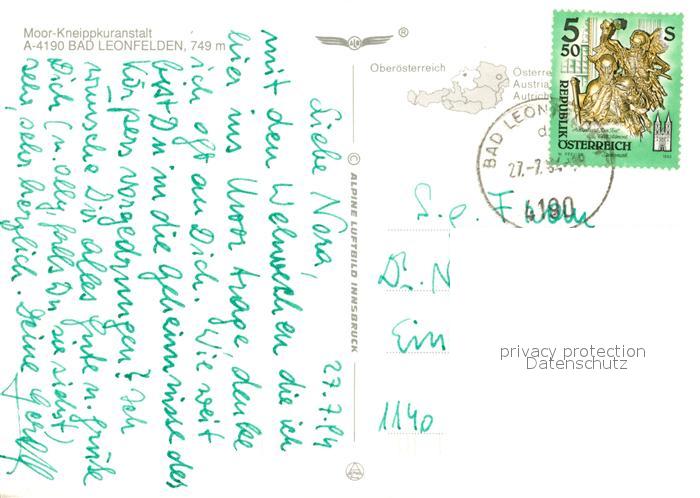 Moor-Kneippkuranstalt
A-4190 BAD LEONFELDEN, 749 m
®
Oberösterreich
Österre
Austria
Autrich
5 S
50
REPUBLIK
ÖSTERREICH
BAD LEON
27.-7.94
4190
© ALPINE LUFTBILD INNSBRUCK
27.7.94
Liebe Nora,
mit den Wehwechen die ich
hier ins Moor trage, denke
ich oft an Dich. Wie weit
bist Du in die Geheimnisse des
Körpers vorgedrungen? Ich
wünsche Dir alles Gute u. grüße
Dich (u. Olly falls Du sie siehst)
sehr, sehr herzlich. Deine
S. g. Frau
Dr. N
Ein
1140
privacy protection
Datenschutz